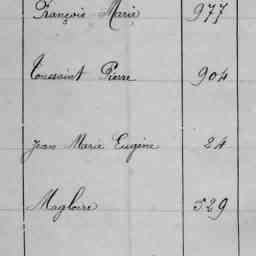 François Marie 977
Toussaint Pierre 904
Jean Marie Eugène 24
Magloire 529